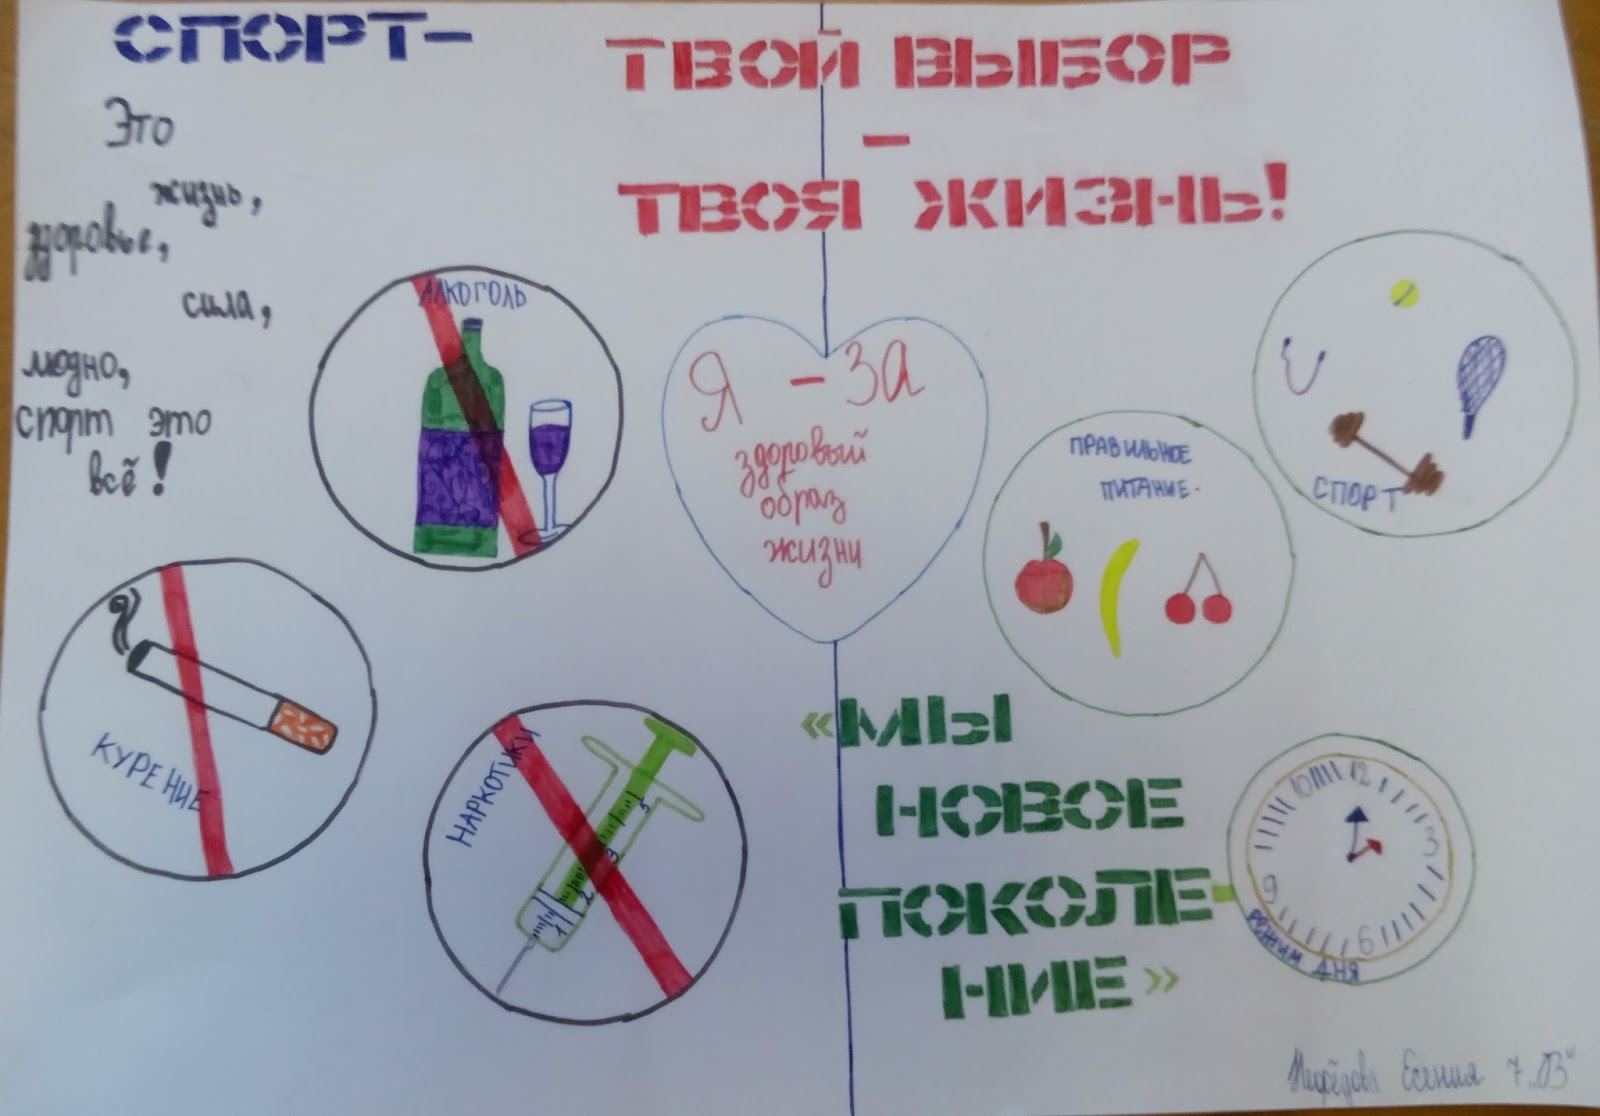 СПОРТ-
Это
жизнь,
здоровье,
сила,
модно,
спорт это
всё!
ТВОЙ ВЫБОР
-
ТВОЯ ЖИЗНЬ!
АЛКОГОЛЬ
КУРЕНИЕ
НАРКОТИКИ
1 2 3 5
Я - ЗА
здоровый
образ
жизни
ПРАВИЛЬНОЕ
ПИТАНИЕ.
СПОРТ
«МЫ
НОВОЕ
ПОКОЛЕ-
НИЕ»
10 12
3
9
6
РЕЖИМ ДНЯ
Есения 7 „В"